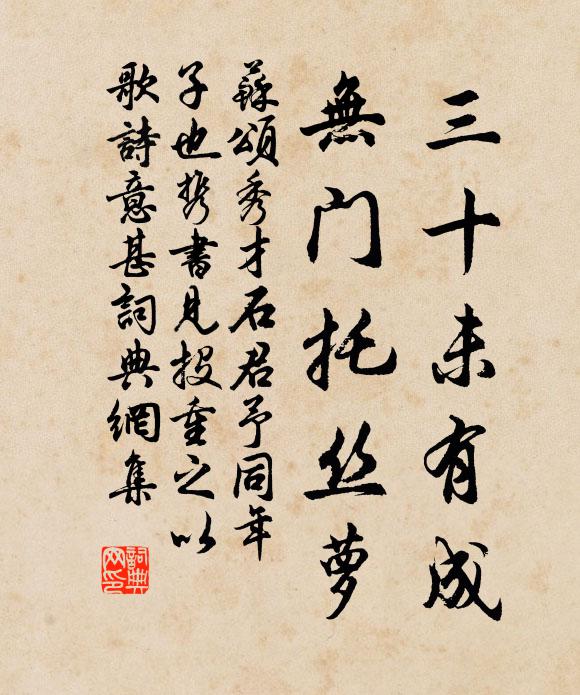 三十未有成
無门托丝萝
蘇頌秀才石君予同年
子也携書見投重之以
歌詩意甚詞典網集
詞典
网印